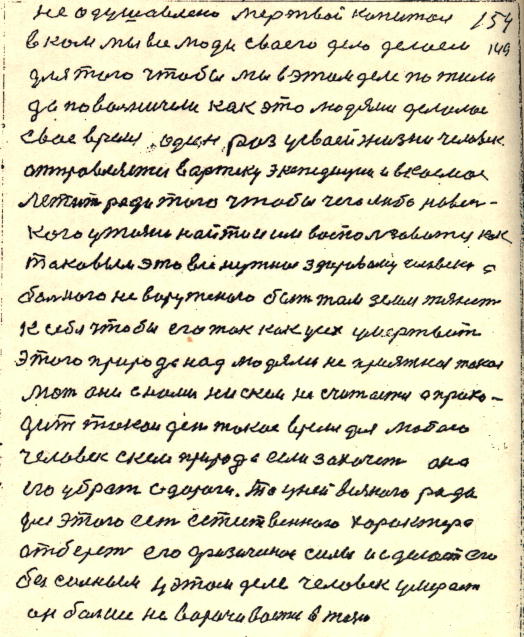 не одушавлено мертвой капитал 154
в ком мы все люди своего дело делаем 149
для того чтобы мы в этом деле пожили
да поволничели как это людями делалос
свое время. один раз у своей жизни человек
отправляется в артику экспедиции и в космос
летит ради того чтобы чего либо новен-
кого у тайне найти и им воспользоватся как
таковым это все нужно здоровому человеку а
болного не воруженого бят там земли тянет
к себе чтобы его так как усех умертвит
Этого природа над людями не приятная такая
мат она с нами нискем не считается а прихо-
дит такой ден такое время для любого
человек скем природа если захочет она
его убрат с дороги. То у ней всякого рода
для этого ест естественного характера
отберет его физичиные силы и сделает его
без силным у этом деле человек умирает
он болше не ворачивается в тело